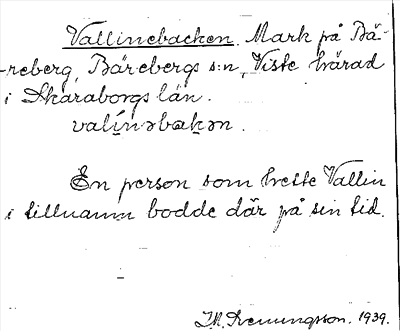 Vallinebacken. Mark på Bä-
reberg, Bärebergs s:n, Viste härad
i Skaraborgs län.
valínəbakən.
En person som hette Vallin
i tillnamn bodde där på sin tid.
1939.